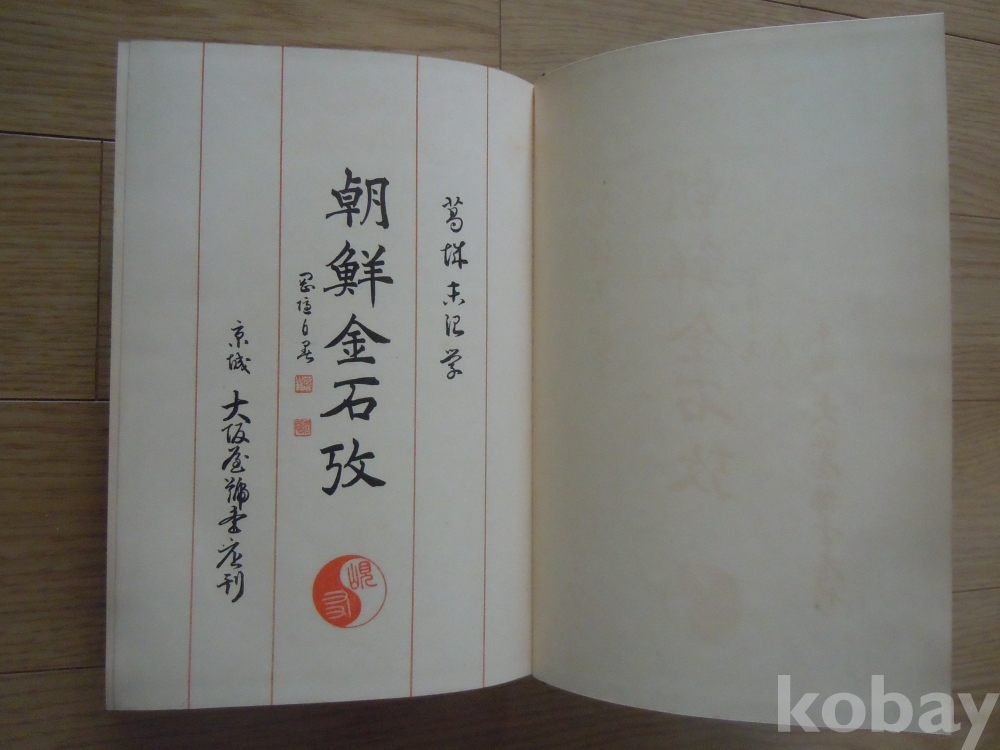 葛城末治学
朝鮮金石攷
京城 大阪屋號書店刊
kobay